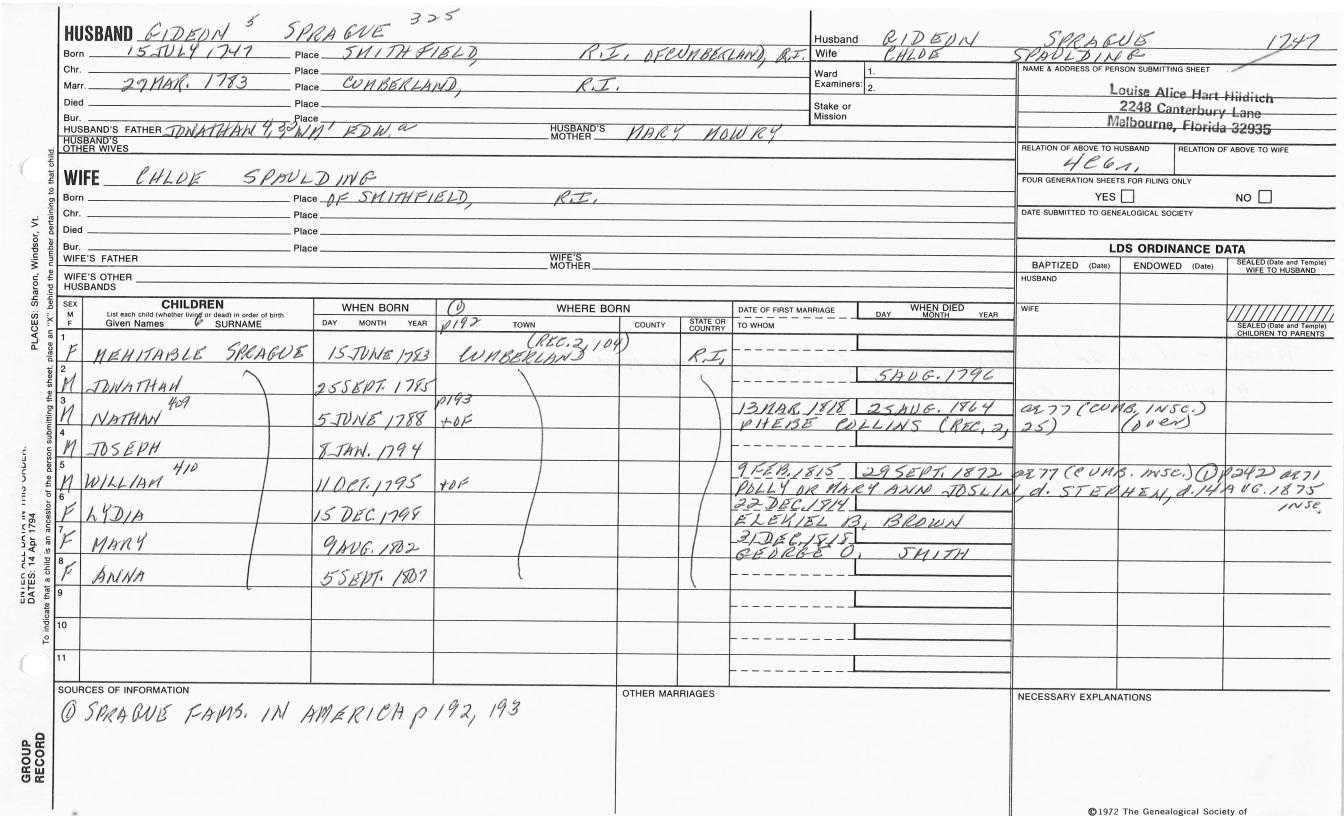 HUSBAND GIDEON 5 SPRAGUE 325
Born 15 JULY 1747 Place SMITHFIELD, R.I. OF CUMBERLAND, R.I.
Chr. Place
Marr. 29 MAR. 1783 Place CUMBERLAND, R.I.
Died Place
Bur. Place
HUSBAND'S FATHER JONATHAN 4, 3, 2 WM' EDW. a HUSBAND'S MOTHER MARY MOWRY
HUSBAND'S OTHER WIVES
WIFE CHLOE SPAULDING
Born Place OF SMITHFIELD, R.I.
Chr. Place
Died Place
Bur. Place
WIFE'S FATHER WIFE'S MOTHER
WIFE'S OTHER HUSBANDS
Husband GIDEON SPRAGUE 1747
Wife CHLOE SPAULDING
Ward Examiners: 1. 2.
Stake or Mission
NAME & ADDRESS OF PERSON SUBMITTING SHEET
Louise Alice Hart Hilditch
2248 Canterbury Lane
Melbourne, Florida 32935
RELATION OF ABOVE TO HUSBAND RELATION OF ABOVE TO WIFE
4C6r.
FOUR GENERATION SHEETS FOR FILING ONLY
YES NO
DATE SUBMITTED TO GENEALOGICAL SOCIETY
LDS ORDINANCE DATA
BAPTIZED (Date) ENDOWED (Date) SEALED (Date and Temple) WIFE TO HUSBAND
HUSBAND
WIFE
SEALED (Date and Temple) CHILDREN TO PARENTS
SEX M F CHILDREN WHEN BORN ① WHERE BORN DATE OF FIRST MARRIAGE WHEN DIED
List each child (whether living or dead) in order of birth
Given Names 6 SURNAME DAY MONTH YEAR p192 TOWN COUNTY STATE OR COUNTRY TO WHOM DAY MONTH YEAR
(REC. 2, 104)
1 F MEHITABLE SPRAGUE 15 JUNE 1783 CUMBERLAND R.I.
2 M JONATHAN 25 SEPT. 1785 5 AUG. 1796
3 M NATHAN 409 5 JUNE 1788 p193 +OF 13 MAR. 1818 25 AUG. 1864 ae 77 (CUMB. INSC.)
PHEBE COLLINS (REC. 2, 25)
4 M JOSEPH 8 JAN. 1794
5 M WILLIAM 410 11 OCT. 1795 +OF 9 FEB. 1815 29 SEPT. 1872 ae 77 (CUMB. INSC.) ① p242 ae 71
POLLY OR MARY ANN JOSLIN, d. STEPHEN, d. 14 AUG. 1875 INSC.
6 F LYDIA 15 DEC. 1798 22 DEC. 1814
EZEKIEL B. BROWN
7 F MARY 9 AUG. 1802 31 DEC. 1818
GEORGE O. SMITH
8 F ANNA 5 SEPT. 1807
9
10
11
SOURCES OF INFORMATION OTHER MARRIAGES NECESSARY EXPLANATIONS
① SPRAGUE FAMS. IN AMERICA p 192, 193
©1972 The Genealogical Society of
PLACES: Sharon, Windsor, Vt.
To indicate that a child is an ancestor of the person submitting the sheet, place an "X" behind the number pertaining to that child.
ENTER ALL DATA IN THIS ORDER:
DATES: 14 Apr 1794
GROUP RECORD